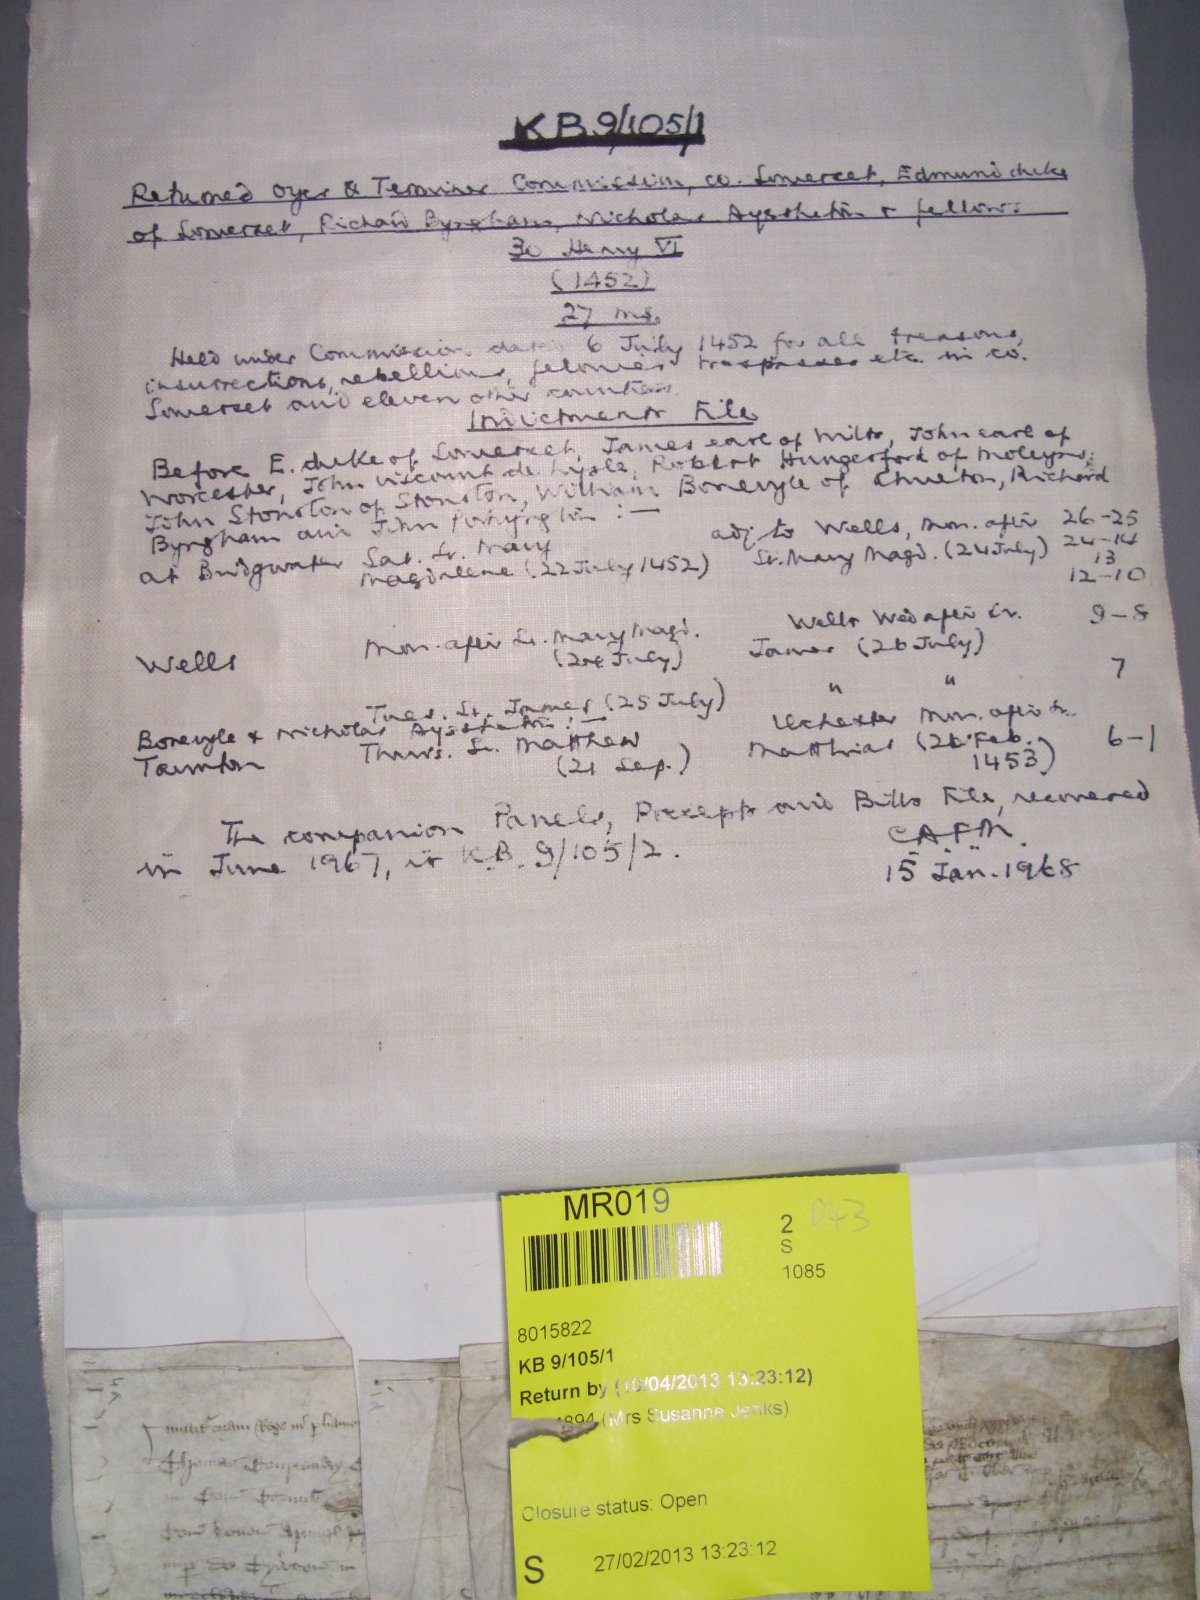 KB 9/105/1
Returned Oyer & Terminer Commission, co. Somerset, Edmund duke
of Somerset, Richard Byngham, Nicholas Aysshetin & fellows
30 Henry VI
(1452)
27 ms.
Held under Commission dated 6 July 1452 for all treasons,
insurrections, rebellions, felonies trespasses etc. in co.
Somerset and eleven other counties.
Indictments File
Before E. duke of Somerset, James earl of Wilts, John earl of
Worcester, John viscount de Lysle, Robert Hungerford of Moleyns,
John Stonston of Stonston, William Bonevyle of Chueton, Richard
Byngham and John :—
at Bridgwater Sat. St. Mary Magdalene (22 July 1452) adj to Wells, Mon. after St. Mary Magd. (24 July) 26-25
24-14
13
12-10
Wells Mon. after St. Mary Magd. (24 July) Wells Wed after St. James (26 July) 9-8
Tues. St. James (25 July) " " 7
Bonevyle & Nicholas Aysshetin :—
Taunton Thurs. St. Matthew (21 Sep.) Ilchester Mon. after St. Matthias (26 Feb. 1453) 6-1
The companion Panels, Precepts and Bills File, recovered
in June 1967, is K.B. 9/105/2.
C.A.F.M.
15 Jan. 1968
MR019
2 D43
S
1085
8015822
KB 9/105/1
Return by (10/04/2013 13:23:12)
1894 (Mrs Susanne Jenks)
Closure status: Open
S 27/02/2013 13:23:12